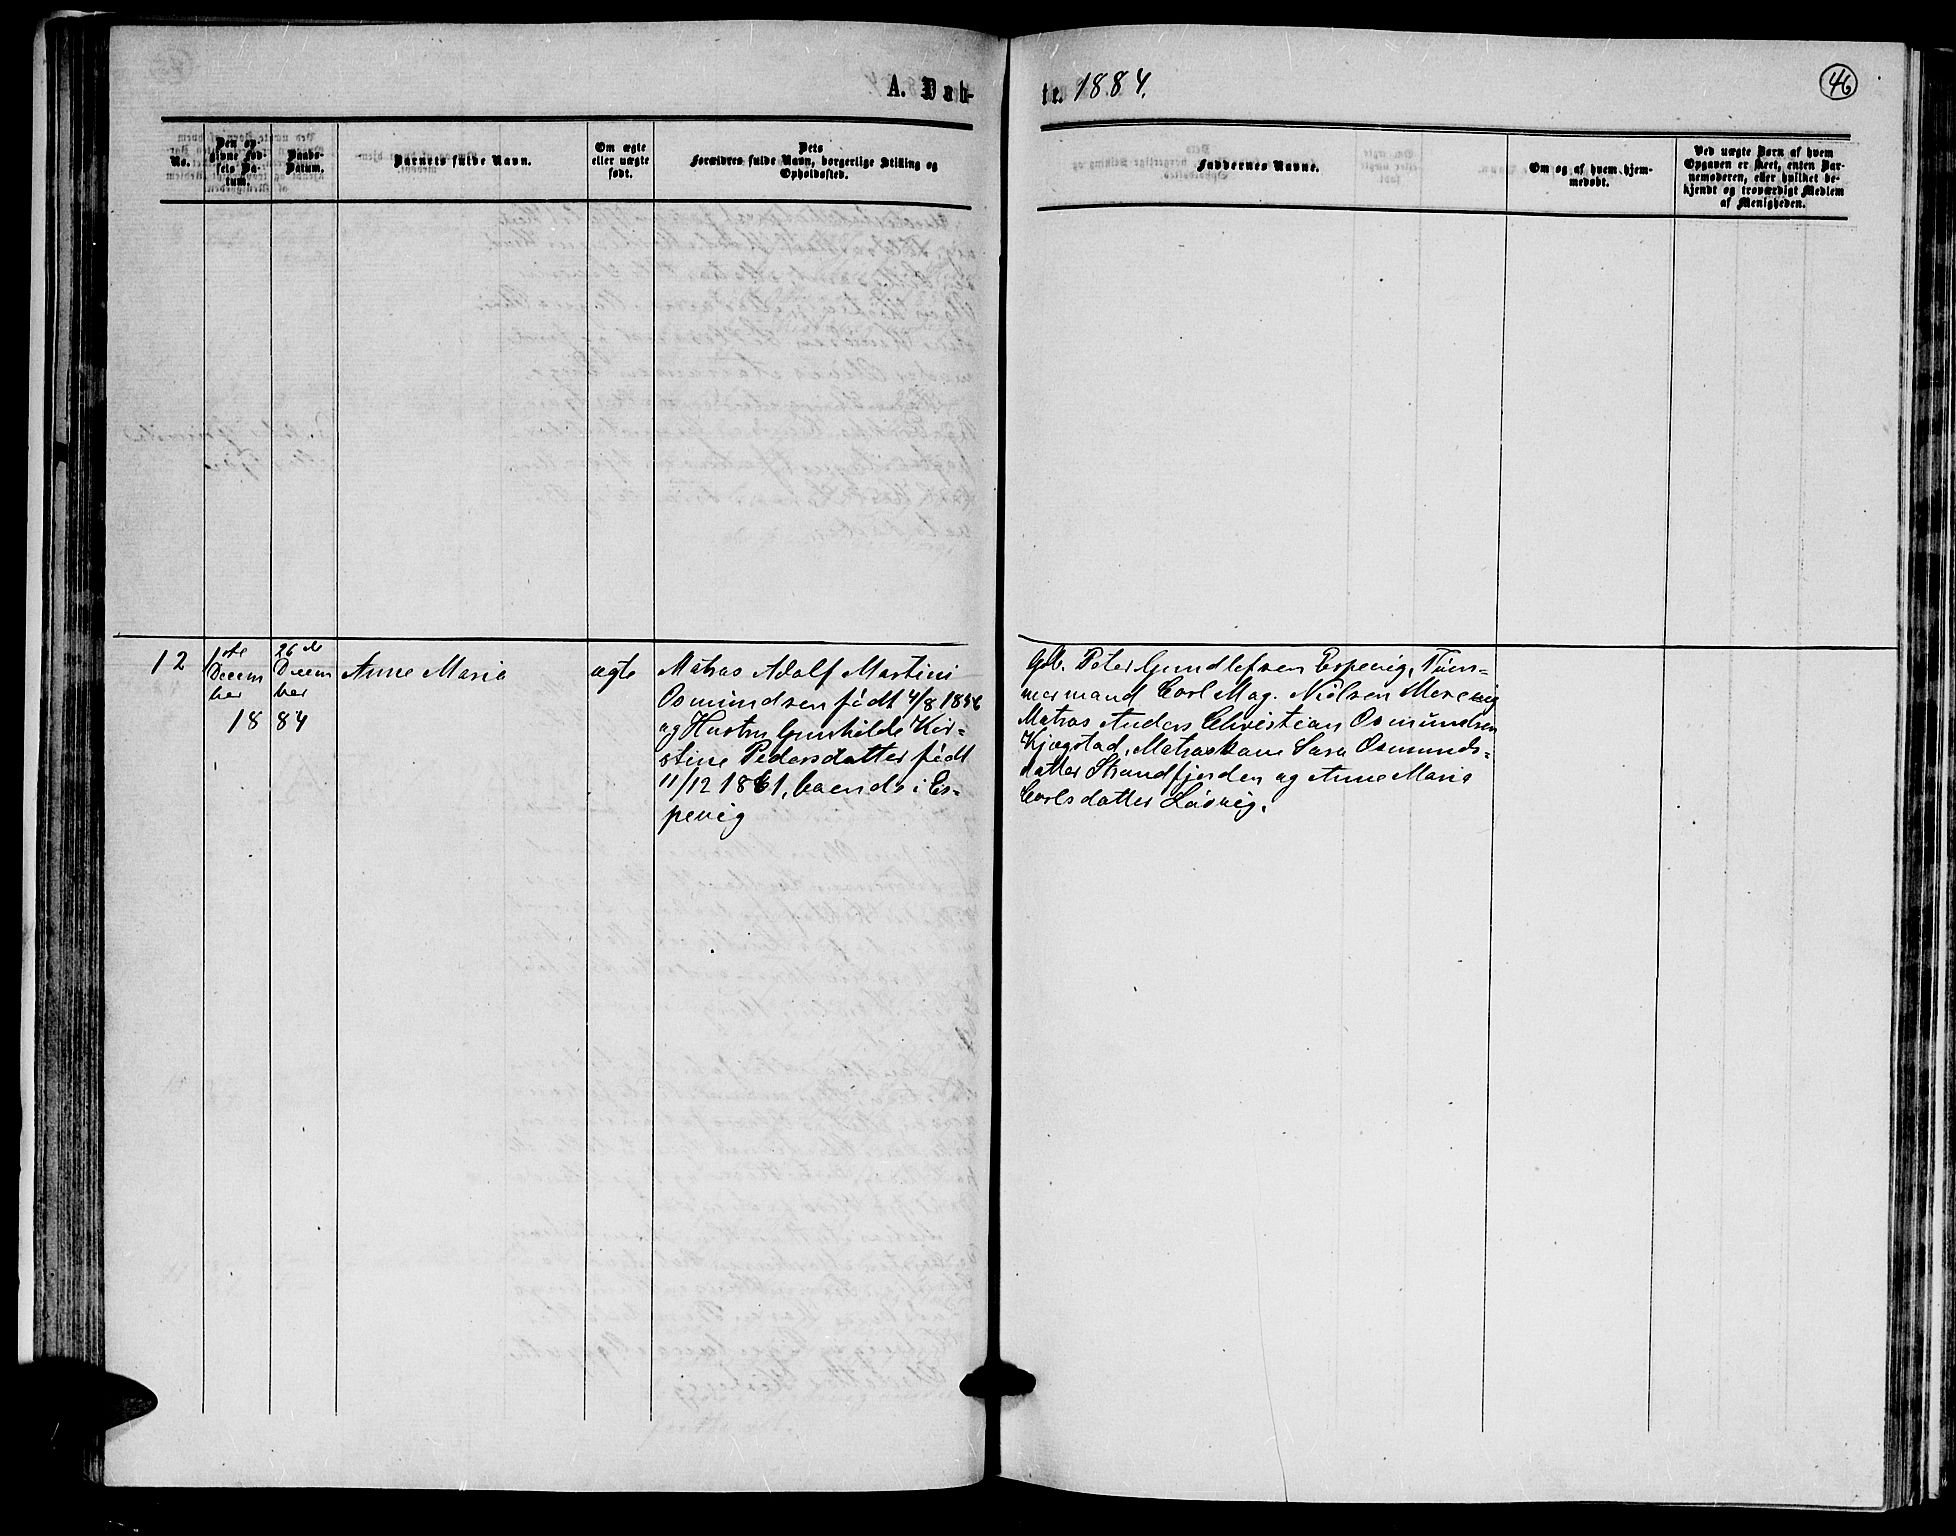 A. Daab-
te. 1884.
46
No.
Den op-
givne Fød-
sels Da-
tum.
Daabs-
Datum.
Barnets fulde Navn.
Om ægte
eller uægte
født.
Dets
Forældres fulde Navn, borgerlige Stilling og
Opholdssted.
Faddernes Navne.
Om og af hvem hjem-
medøbt.
Ved uægte Børn af hvem
Opgaven er skeet, enten Bar-
nemoderen, eller hvilket be-
kjendt og troværdigt Medlem
af Menigheden.
12
1ste
Decem
ber
18
26de
Decem
ber
84
Anne Marie
ægte
Matros Adolf Martini
Osmundsen født 4/8 1856
og Hustru Gunhilde Kir-
stine Pedersdatter født
11/12 1861, boende i Es-
pevig
Gbr. Peter Gundlefsen Espevig, Tøm-
mermand Carl Mag. Nielsen Morevig
Matros Anders Christian Osmundsen
Kjægstad, Matroskone Sara Osmunds-
datter Strandfjorden og Anne Marie
Carlsdatter Løvvig.